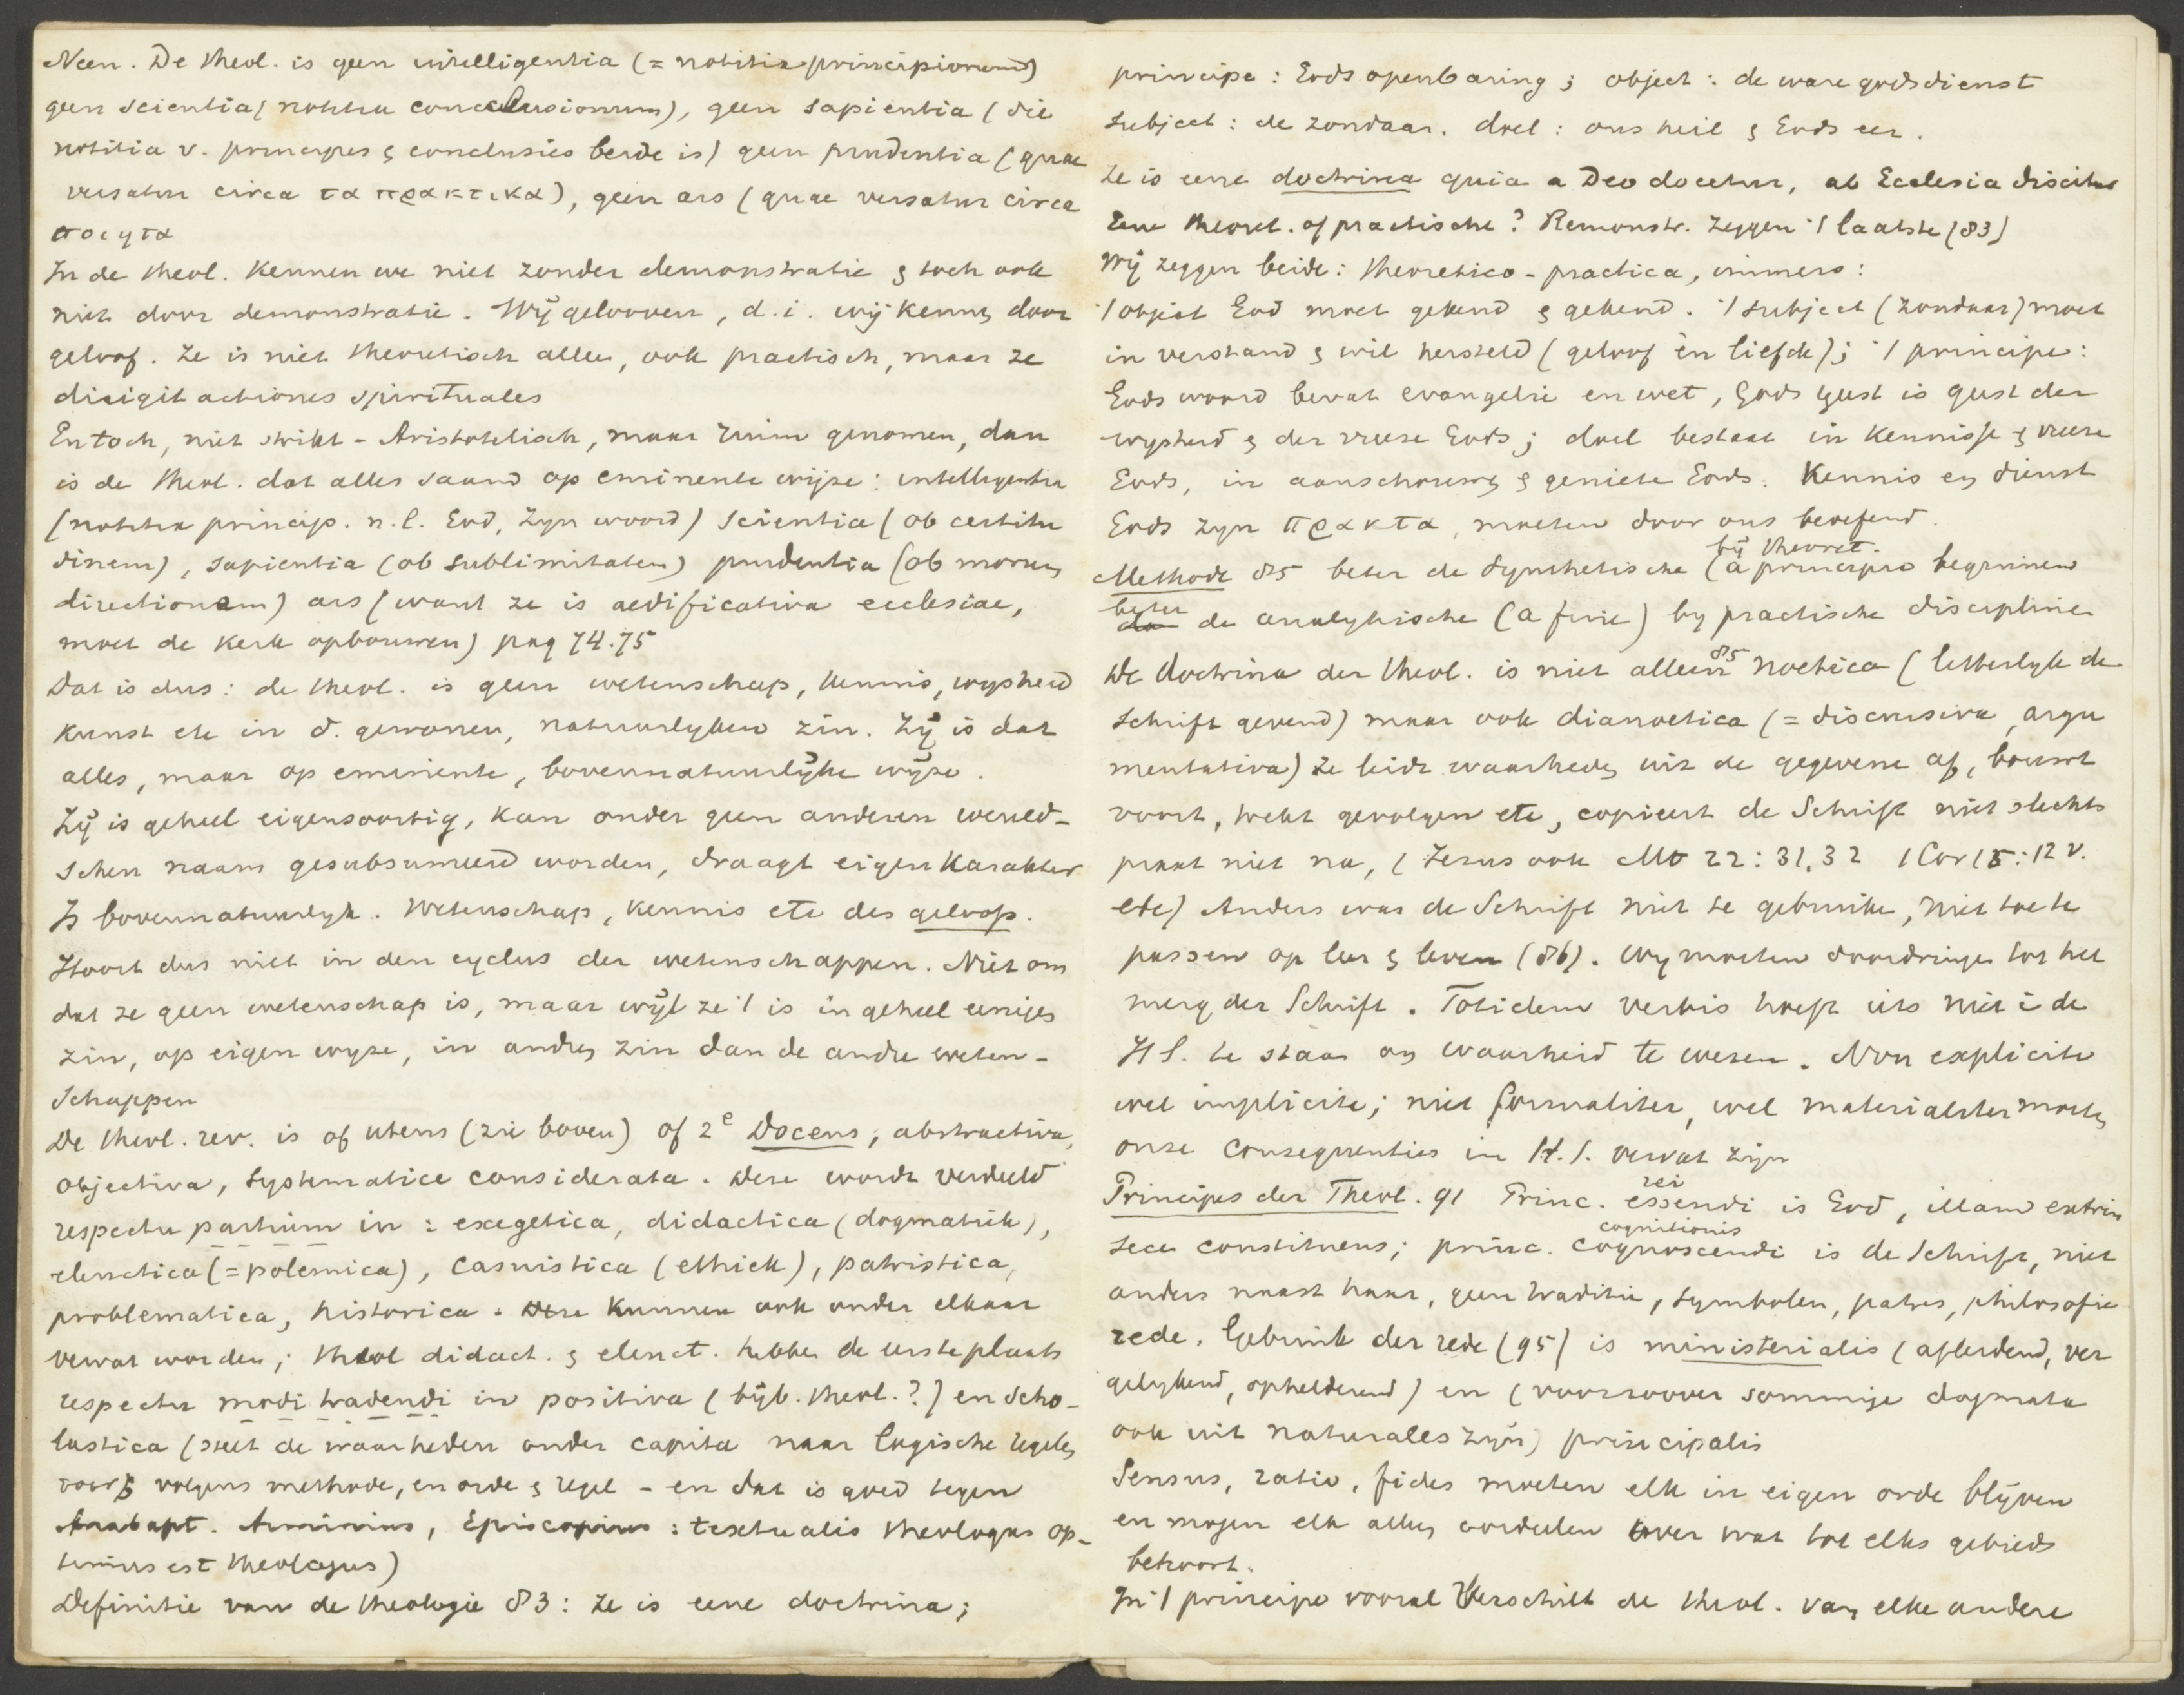 Neen. De theol. is geen intelligentia (= notitia principiorum)
geen scientia (notitia conclusionum), geen sapientia (die
notitia v. principes & conclusies beide is) geen prudentia (quae
versatur circa τα πρακτικα), geen ars (quae versatur circa
ποιητα
In de theol. kennen we niet zonder demonstratie & toch ook
niet door demonstratie. Wij gelooven, d.i. wij kennen door
geloof. Ze is niet theoretisch alleen, ook practisch, maar ze
dirigit actiones spirituales
En toch, niet strikt-Aristotelisch, maar ruim genomen, dan
is de theol. dat alles saamd op eminente wijze: intelligentia
(notitia princip. n.l. God, Zyn woord) scientia (ob certitu
dinem), sapientia (ob sublimitatem) prudentia (ob morum
directionem) ars (want ze is aedificativa ecclesiae,
moet de kerk opbouwen) pag 74.75
Dat is dus: de theol. is geen wetenschap, kennis, wysheid
kunst etc in d. gewonen, natuurlyken zin. Zij is dat
alles, maar op eminente, bovennatuurlijke wijze.
Zij is geheel eigensoortig, kan onder geen anderen wereld-
schen naam gesubsumeerd worden, draagt eigen karakter
Is bovennatuurlyk. Wetenschap, kennis etc des geloofs.
Hoort dus niet in den cyclus der wetenschappen. Niet om
dat ze geen wetenschap is, maar wijl ze 't is in geheel eenigen
zin, op eigen wyze, in andren zin dan de andre weten-
schappen
De theol. rev. is of utens (zie boven) of 2e Docens, abstractiva,
objectiva, systematice considerata. Deze wordt verdeeld
respectu partium in: exegetica, didactica (dogmatiek),
elenctica (= polemica), casuistica (ethiek), patristica,
problematica, historica. Deze kunnen ook onder elkaar
vervat worden; theol didact. & elenct. hebben de eerste plaats
respectu modi tradendi in positiva (bijb. theol.?) en scho-
lastica (stelt de waarheden onder capita naar logische regelen
voor & volgens methode, en orde & regel - en dat is goed tegen
Anabapt. Arminius, Episcopius: textualis theologus op-
timus est theologus)
Definitie van de theologie 83: ze is eene doctrina;
principe: Gods openbaring; object: de ware godsdienst
subject: de zondaar. doel: ons heil & Gods eer.
Ze is eene doctrina quia a Deo docetur, ab Ecclesia discitur
Eene theoret. of practische? Remonstr. zeggen 't laatste (83)
Wij zeggen beide: theoretico-practica, immers:
't object God moet gekend & gediend. 't subject (zondaar) moet
in verstand & wil hersteld (geloof èn liefde); 't principe:
Gods woord bevat evangelie en wet, Gods geest is geest der
wysheid & der vreeze Gods; doel bestaat in kennisse & vreeze
Gods, in aanschouwing & genieten Gods. Kennis en dienst
Gods zyn πρακτα, moeten door ons beoefend.
Methode 85 beter de synthetische (a principio beginnen
bij theoret.
beter de analytische (a fine) by practische disciplinen
De doctrina der theol. is niet alleen 85 noetica (letterlyk de
schrift gevend) maar ook dianoetica (= discursiva, argu
mentativa) ze leidt waarheden uit de gegevene af, bouwt
voort, trekt gevolgen etc, copieert de Schrift niet slechts
praat niet na, (Jezus ook Mt 22:31.32 1 Cor 15:12 v.
etc) Anders was de Schrift niet te gebruiken, niet toe te
passen op leer & leven (86). Wy moeten doordringen tot het
merg der Schrift. Totidem verbis hoeft iets niet i de
H S. te staan om waarheid te wezen. Non explicite
wel implicite; niet formaliter, wel materialiter moeten
onze consequenties in H.S. vervat zijn
Principes der Theol. 91 Princ. essendi rei is God, illam extrin
sece constituens; princ. cognoscendi cognitionis is de Schrift, niet
anders naast haar, geen traditie, symbolen, patres, philosofie
rede. Gebruik der rede (95) is ministerialis (afleidend, ver
gelykend, ophelderend) en (voorzoover sommige dogmata
ook uit naturales zijn) principalis
Sensus, ratio, fides moeten elk in eigen orde blijven
en mogen elk alleen oordeelen over wat tot elks gebied
behoort.
In 't principe vooral verschilt de theol. van elke andere